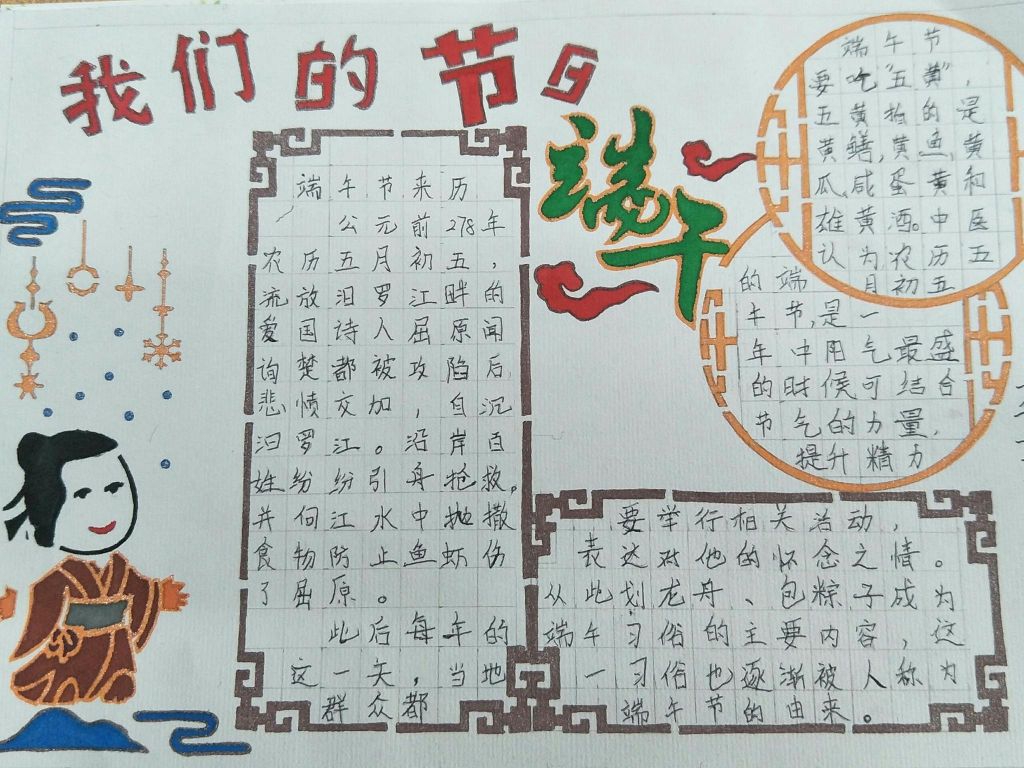 我们的节日
端午
端午节来历
公元前278年
农历五月初五，
流放汨罗江畔的
爱国诗人屈原闻
询楚都被攻陷后，
悲愤交加，自沉
汨罗江。沿岸百
姓纷纷引舟抢救。
并向江水中抛撒
食物防止鱼虾伤
了屈原。
此后每年的
这一天，当地
群众都
要举行相关活动，
表达对他的怀念之情。
从此划龙舟、包粽子成为
端午习俗的主要内容，这
一习俗也逐渐被人称为
端午节的由来。
端午节
要吃“五黄”，
五黄指的是
黄鳝，黄鱼，黄
瓜、咸蛋黄和
雄黄酒。中医
认为，农历五
月初五
的端
午节，是一
年中阳气最盛
的时候可结合
节气的力量，
提升精力